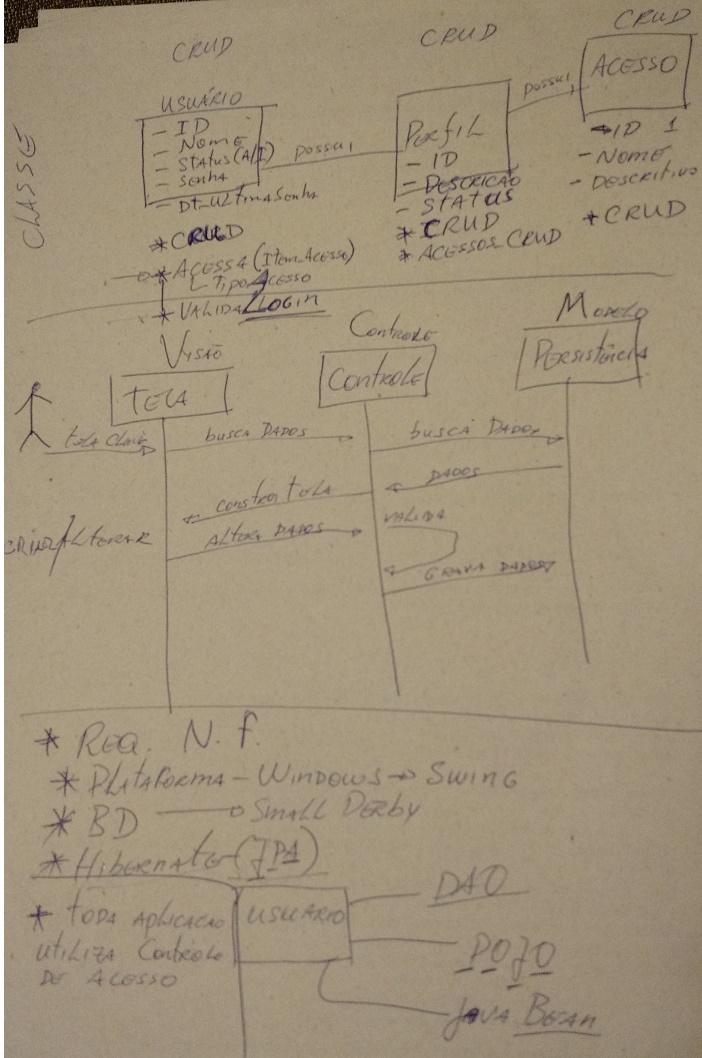 CRUD
CRUD
CRUD
CLASSE
USUÁRIO
- ID
- Nome
- Status (A/I)
- Senha
- Dt_UltimaSenha
* CRUD
* Acessa (Item_Acesso)
Tipo Acesso
* VALIDA LOGIN
possui
Perfil
- ID
- DESCRICAO
- STATUS
* CRUD
* ACESSOS CRUD
possui
ACESSO
- ID 1
- NOME
- DESCRITIVO
* CRUD
Visão
Controle
Modelo
TELA
Controle
Persistência
busca DADOS
busca DADOS
DADOS
Constroi tela
Altera DADOS
VALIDA
GRAVA DADOS
CRIAR/Alterar
* Req. N.f.
* Plataforma - Windows → Swing
* BD Small Derby
* Hibernate (JPA)
* toda aplicacao
utiliza Controle
de acesso
USUÁRIO
DAO
POJO
Java Bean